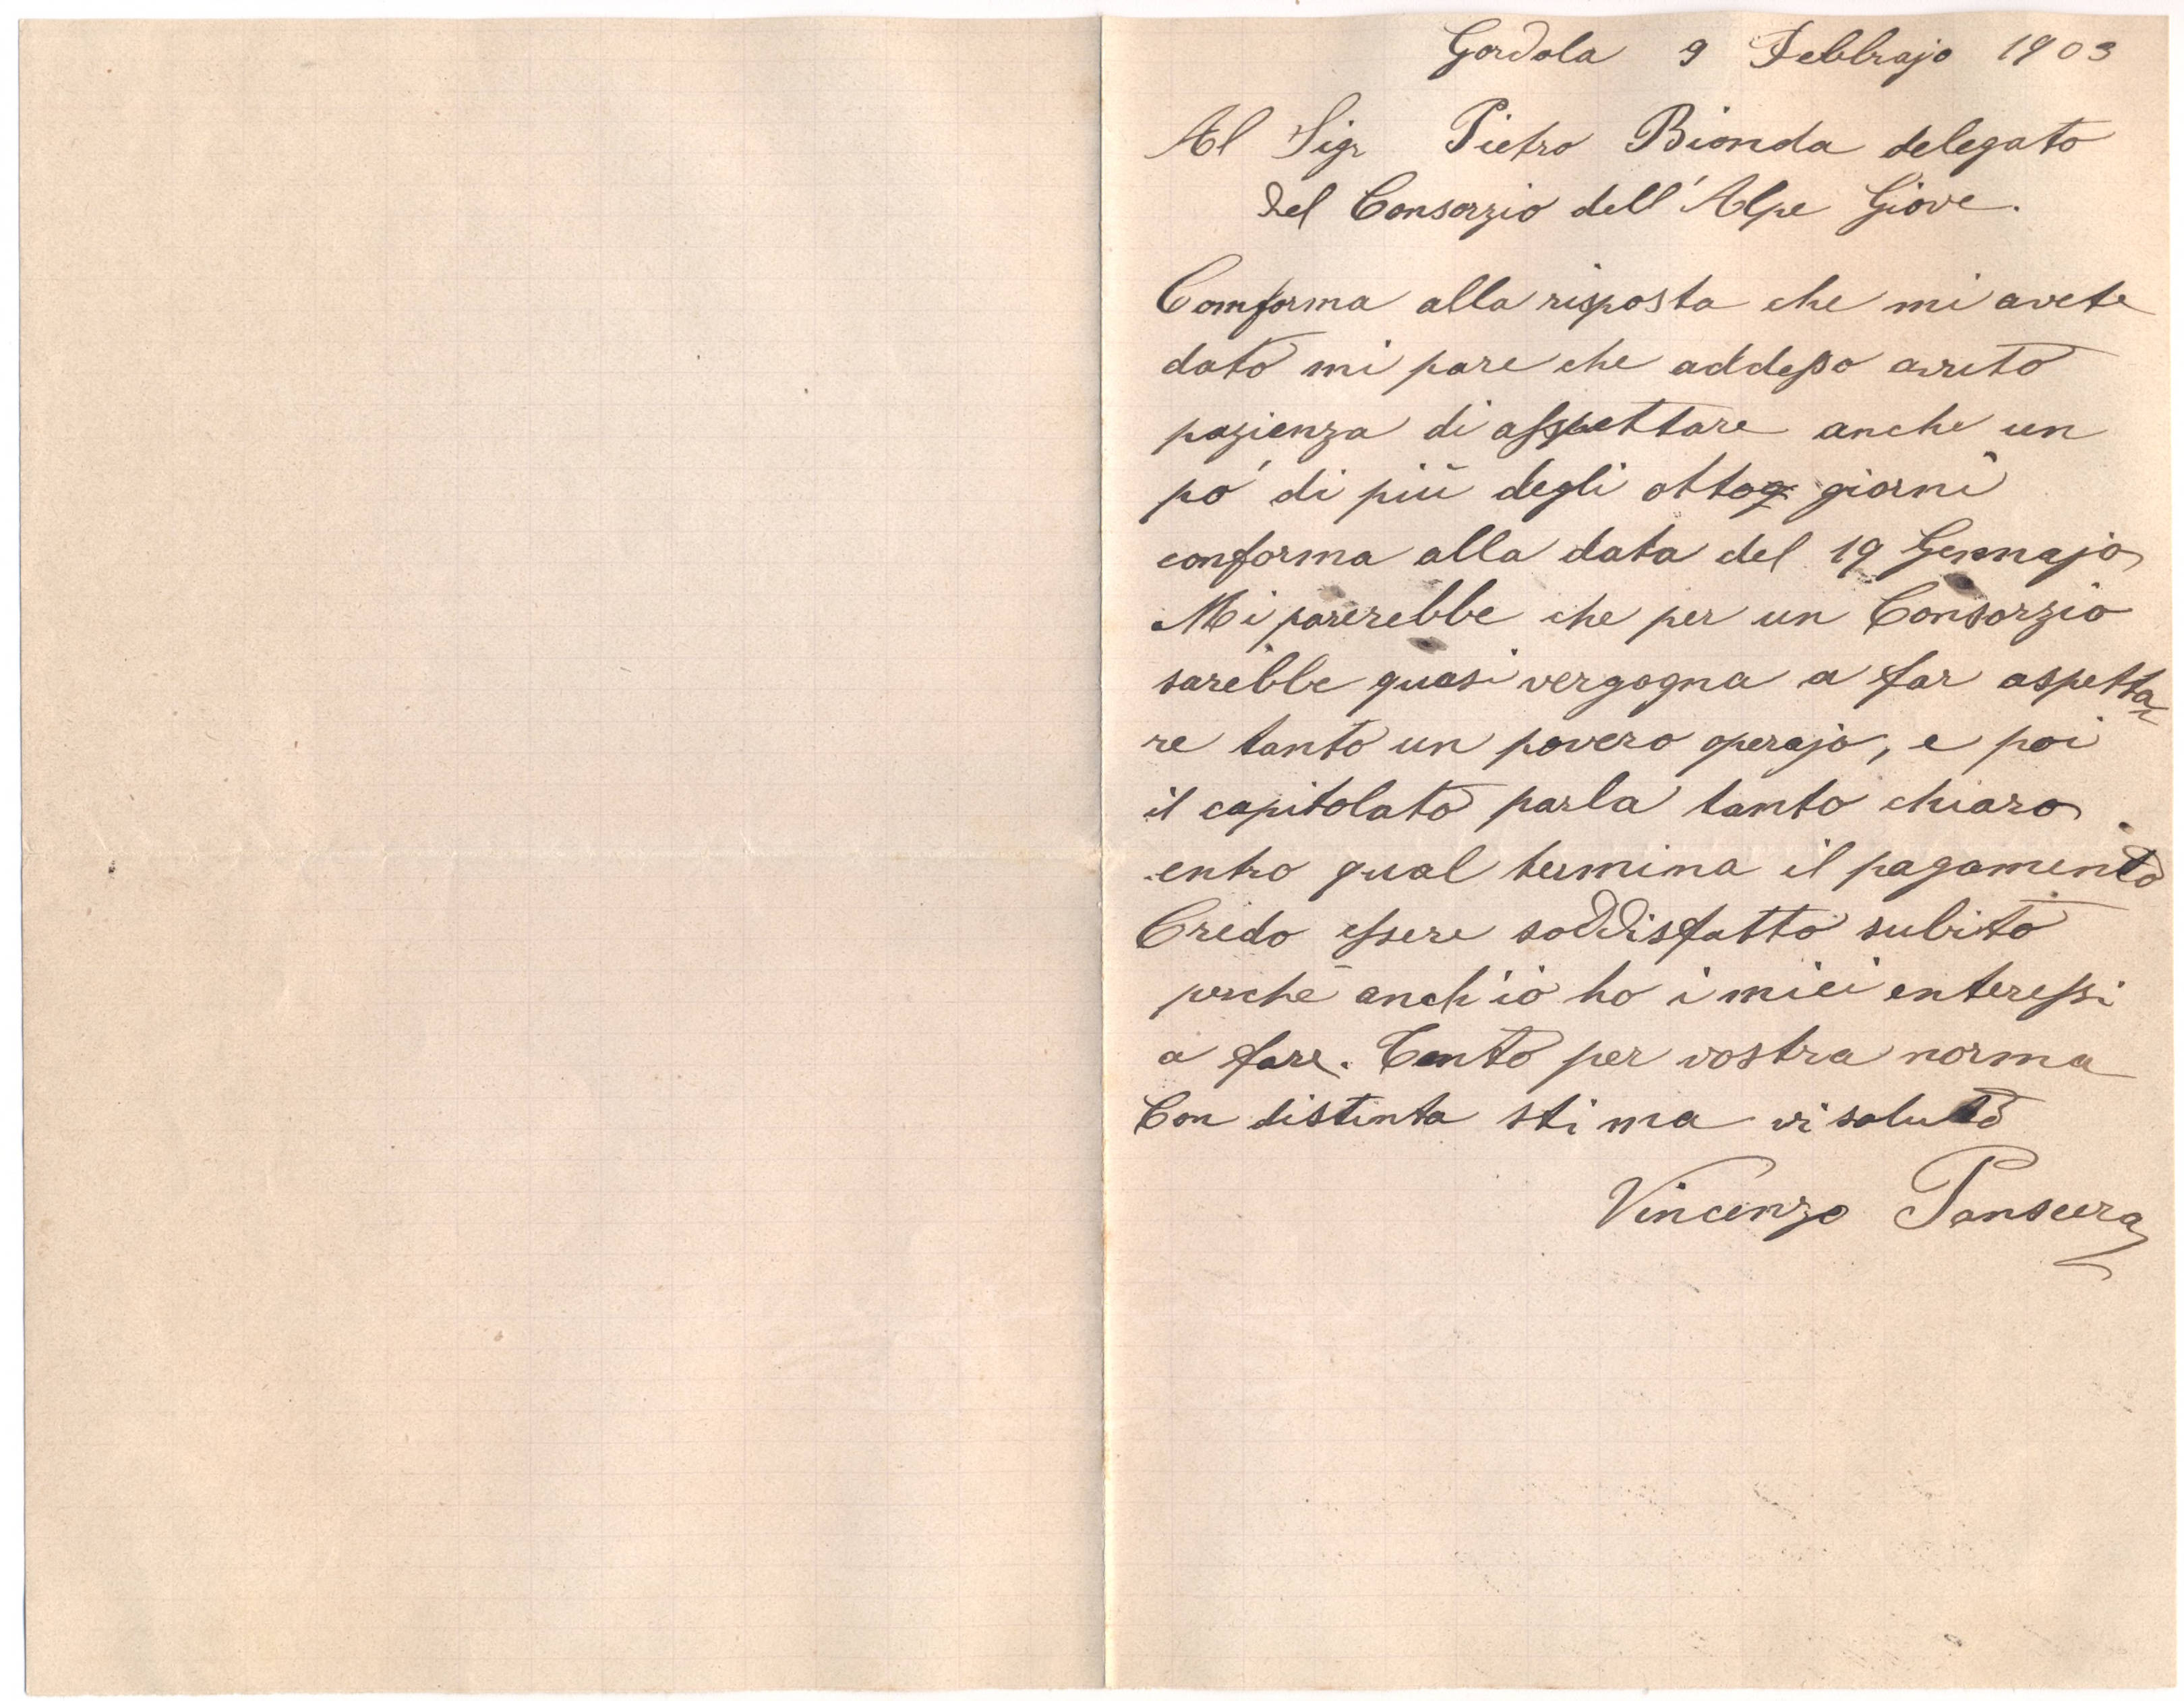 Gordola 9 Febbrajo 1903
Al Sigr Pietro Bionda delegato
del Consorzio dell'Alpe Giove.
Comforma alla risposta che mi avete
dato mi pare che addesso avuto
pazienza di asspettare anche un
pó di più degli otto giorni
conforma alla data del 19 Gennajo
Mi parerebbe che per un Consorzio
sarebbe quasi vergogna a far aspetta
re tanto un povero operajo, e poi
il capitolato parla tanto chiaro
entro qual termina il pagamento
Credo essere soddisfatto subito
perche anch'io ho i miei enteressi
a fare. Tanto per vostra norma
Con distinta stima vi saluto
Vincenzo Pansera